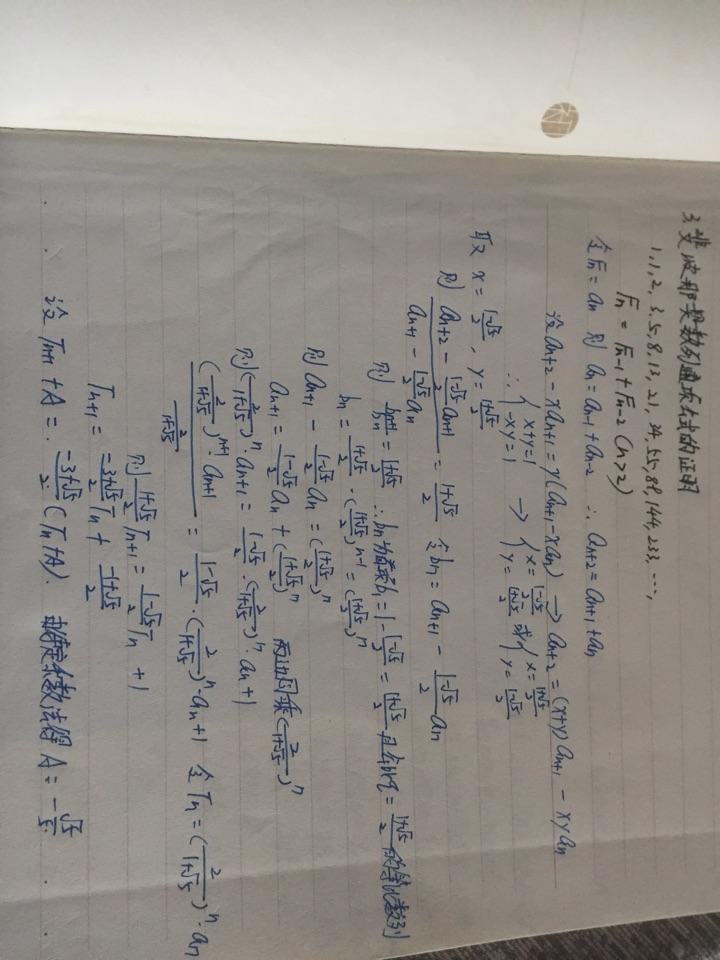 3. 斐波那契数列通项公式的证明
1,1,2,3,5,8,13,21,34,55,89,144,233,…,
Fn = Fn-1 + Fn-2 (n>2)
令Fn = an 则 an = an-1 + an-2 ∴ an+2 = an+1 + an
设 an+2 - xan+1 = y(an+1 - xan) → an+2 = (x+y)an+1 - xyan
∴ { x+y=1 -xy=1 → { x = (1-√5)/2 y = (1+√5)/2 或 { x = (1+√5)/2 y = (1-√5)/2
取 x = (1-√5)/2 , y = (1+√5)/2
则 (an+2 - (1-√5)/2 an+1)/(an+1 - (1-√5)/2 an) = (1+√5)/2 令bn = an+1 - (1-√5)/2 an
则 bn+1/bn = (1+√5)/2 ∴ bn为首项b1 = 1 - (1-√5)/2 = (1+√5)/2 且公比q = (1+√5)/2 的等比数列
bn = (1+√5)/2 · ((1+√5)/2)^(n-1) = ((1+√5)/2)^n
则 an+1 - (1-√5)/2 an = ((1+√5)/2)^n
an+1 = (1-√5)/2 an + ((1+√5)/2)^n 两边同乘(2/(1+√5))^n
则 (2/(1+√5))^n · an+1 = (1-√5)/2 · (2/(1+√5))^n · an + 1
((2/(1+√5))^(n+1) · an+1)/(2/(1+√5)) = (1-√5)/2 · (2/(1+√5))^n · an + 1 令Tn = (2/(1+√5))^n · an
则 (1+√5)/2 Tn+1 = (1-√5)/2 Tn + 1
Tn+1 = (-3+√5)/2 Tn + (-1+√5)/2
设 Tn+1 + A = (-3+√5)/2 (Tn + A). 由待定系数法得 A = -√5/5.